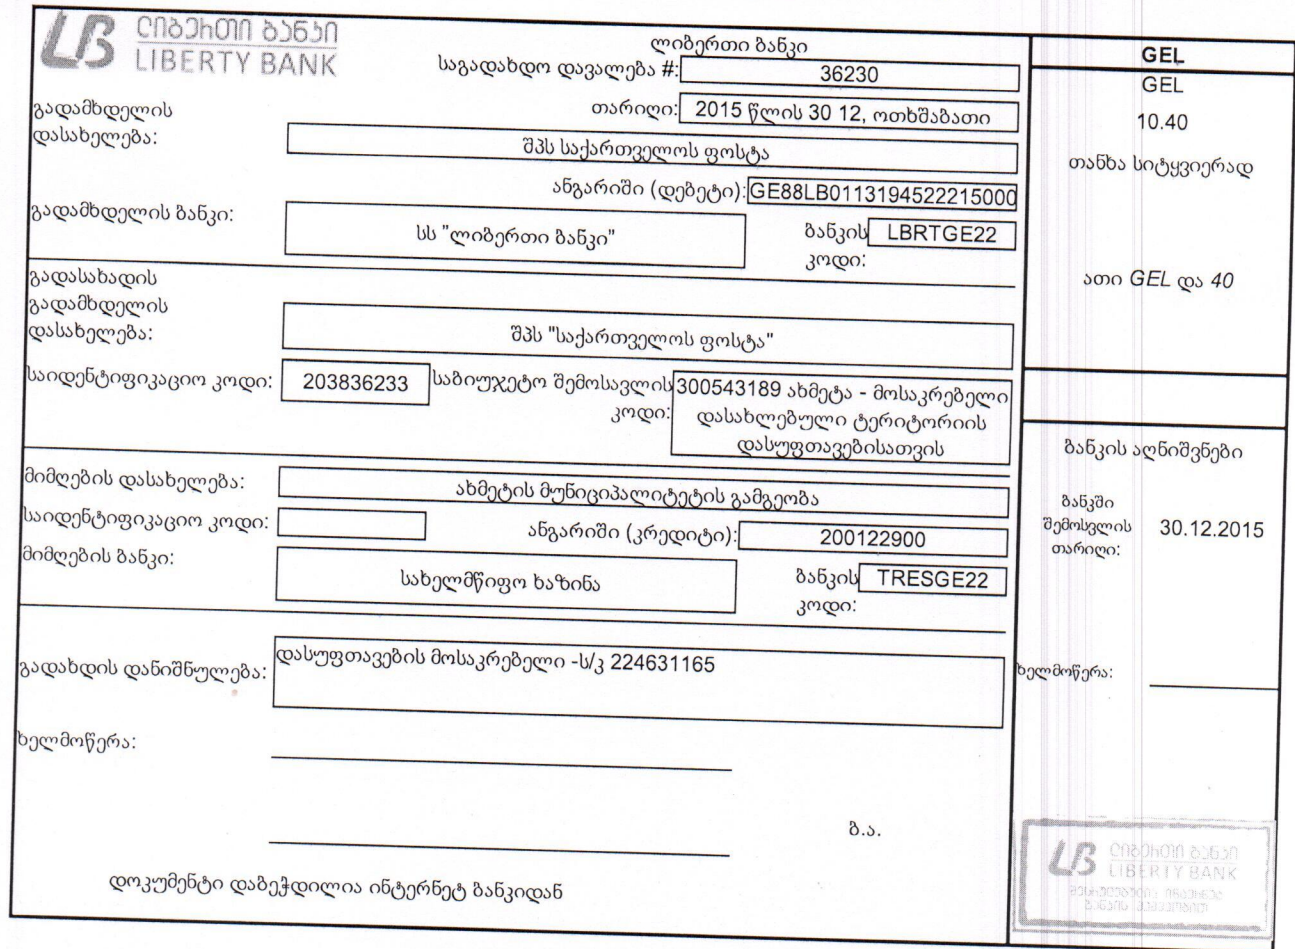 ლიბერთი ბანკი
LIBERTY BANK
ლიბერთი ბანკი
საგადახდო დავალება #: 36230
თარიღი: 2015 წლის 30 12, ოთხშაბათი
გადამხდელის
დასახელება:
შპს საქართველოს ფოსტა
ანგარიში (დებეტი): GE88LB0113194522215000
გადამხდელის ბანკი:
სს "ლიბერთი ბანკი"
ბანკის LBRTGE22
კოდი:
გადასახადის
გადამხდელის
დასახელება:
შპს "საქართველოს ფოსტა"
საიდენტიფიკაციო კოდი: 203836233
საბიუჯეტო შემოსავლის
კოდი:
300543189 ახმეტა - მოსაკრებელი
დასახლებული ტერიტორიის
დასუფთავებისათვის
მიმღების დასახელება: ახმეტის მუნიციპალიტეტის გამგეობა
საიდენტიფიკაციო კოდი:
ანგარიში (კრედიტი): 200122900
მიმღების ბანკი:
სახელმწიფო ხაზინა
ბანკის TRESGE22
კოდი:
გადახდის დანიშნულება: დასუფთავების მოსაკრებელი -ს/კ 224631165
ხელმოწერა:
ბ.ა.
დოკუმენტი დაბეჭდილია ინტერნეტ ბანკიდან
GEL
GEL
10.40
თანხა სიტყვიერად
ათი GEL და 40
ბანკის აღნიშვნები
ბანკში
შემოსვლის
თარიღი:
30.12.2015
ხელმოწერა:
ლიბერთი ბანკი
LIBERTY BANK